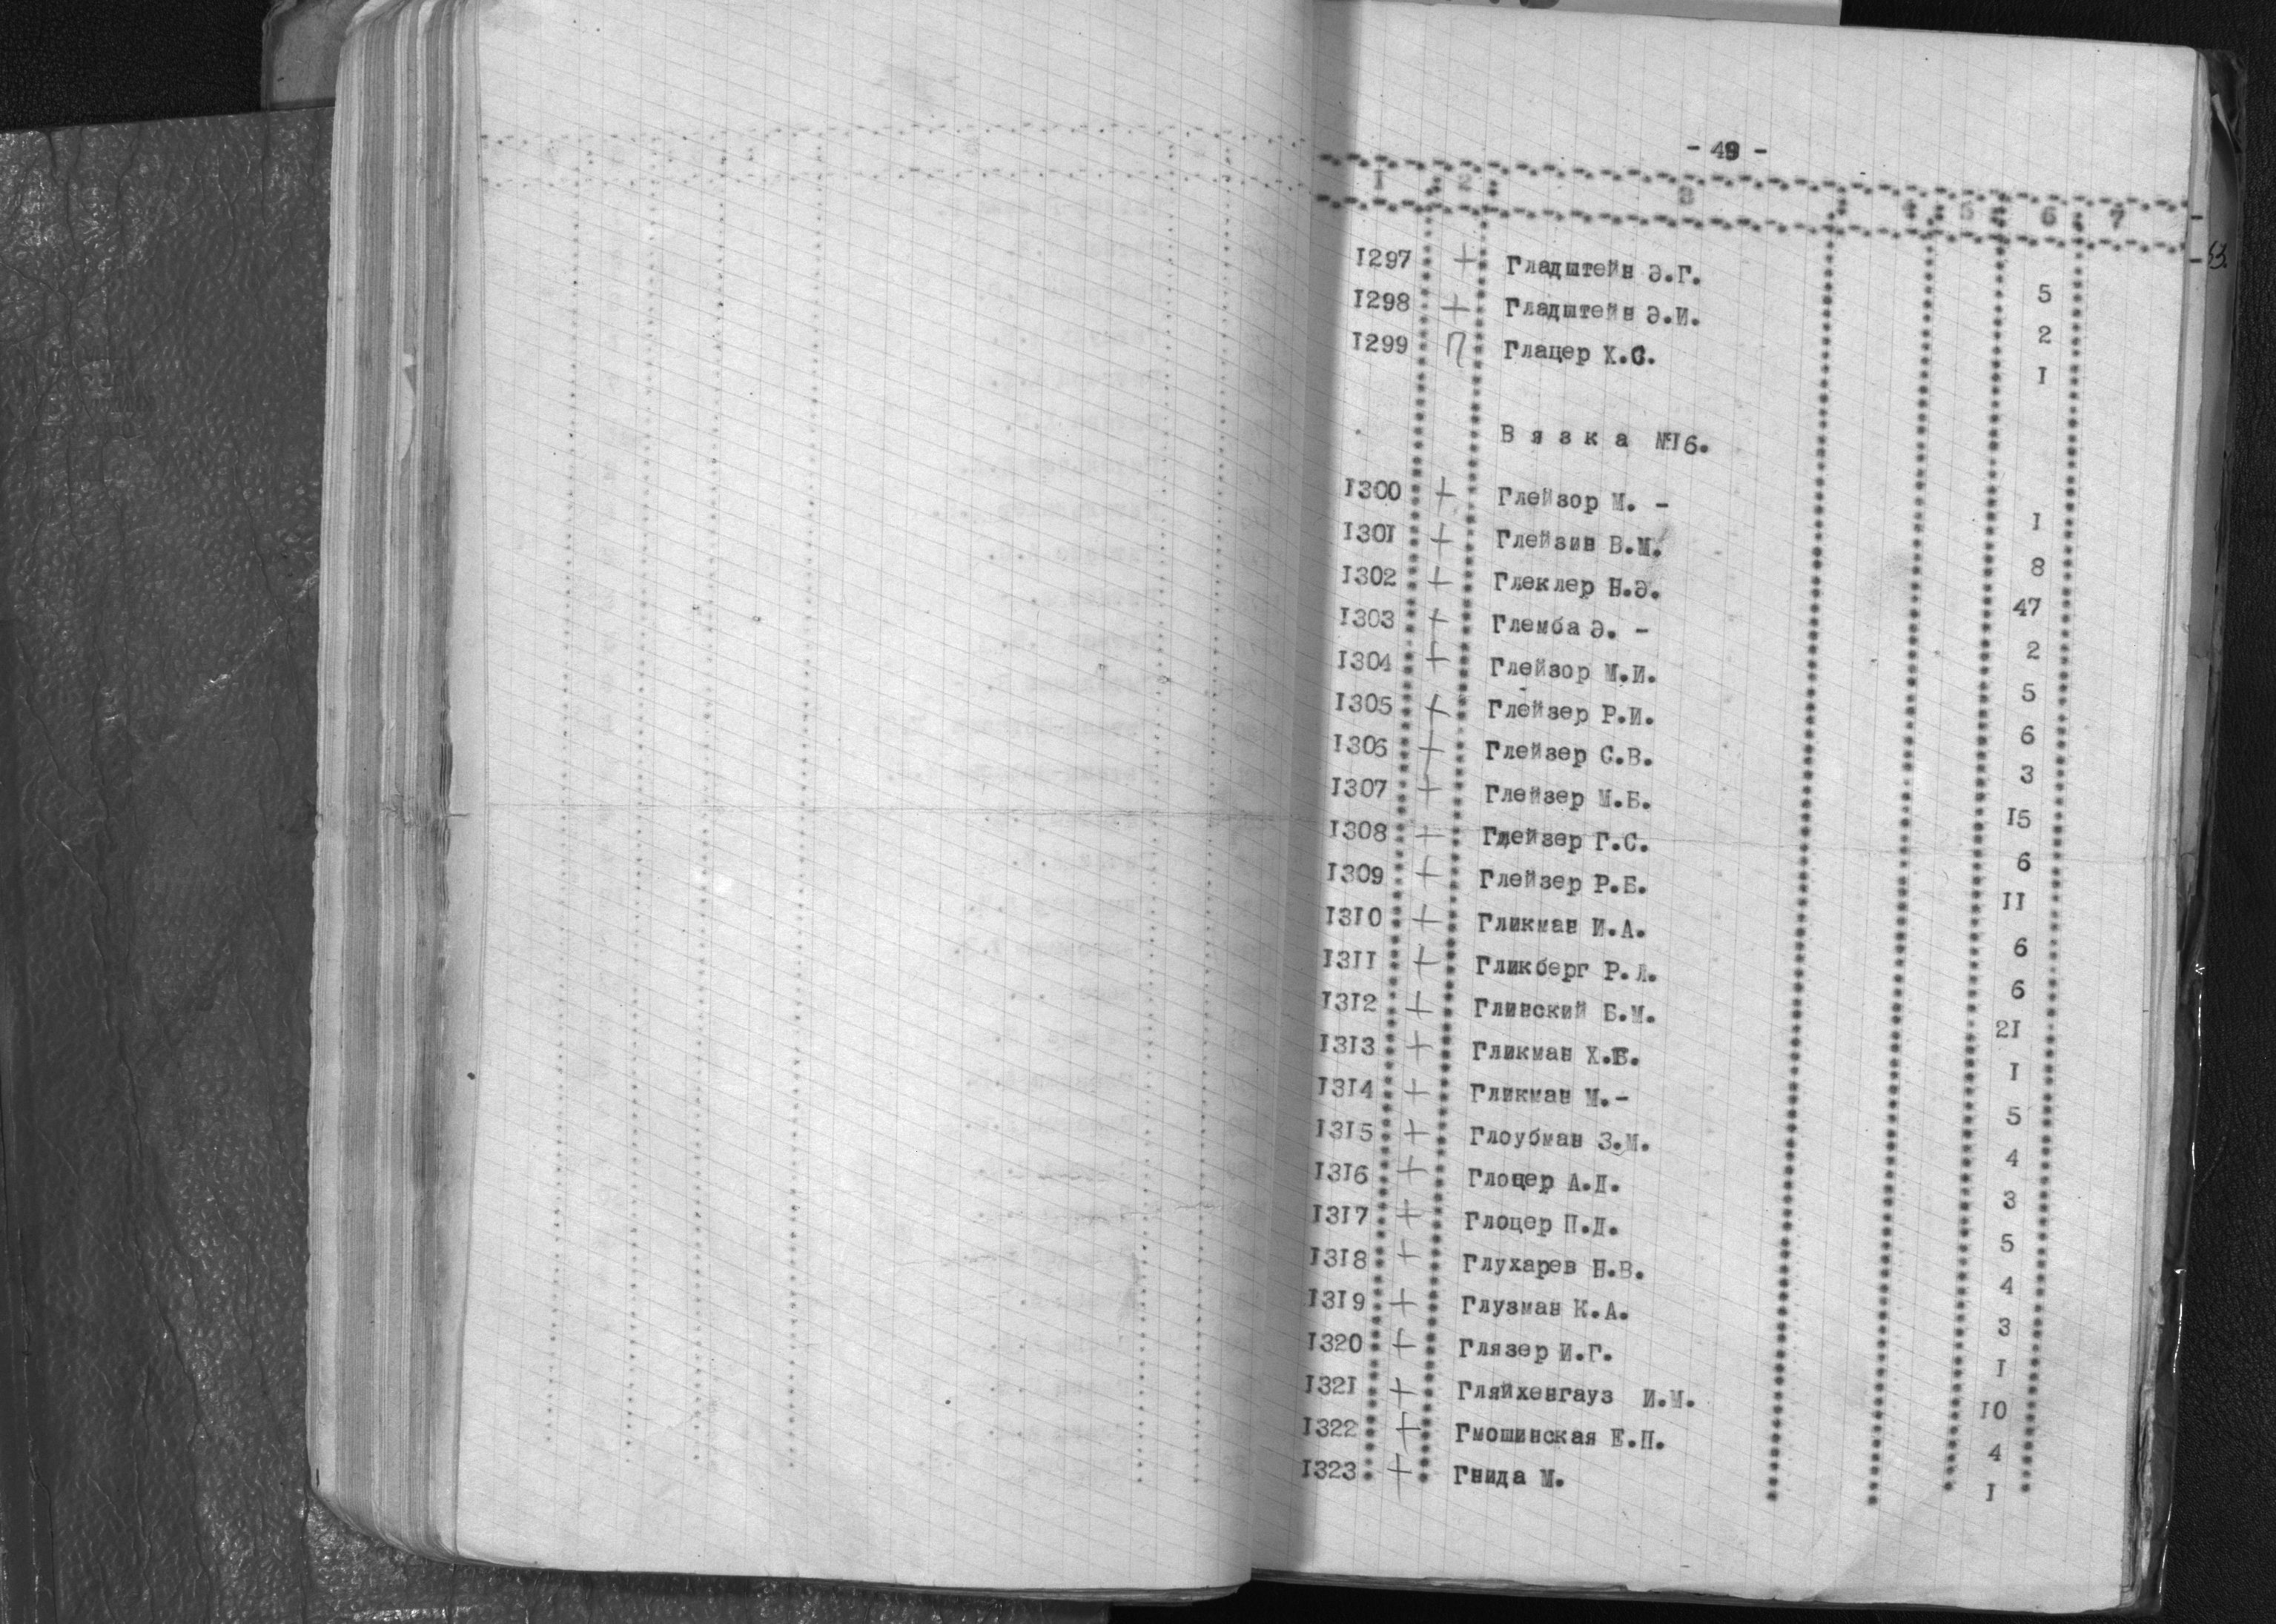 - 49 -
1 2 3 4 5 6 7
53.
I297 + Гладштейн Э.Г. 5
I298 + Гладштейн Э.И. 2
I299 П Глацер Х.С. I
В я з к а №I6.
I300 + Глейзор М. - I
I30I + Глейзин В.М. 8
I302 + Глеклер Н.Э. 47
I303 + Глемба Э. - 2
I304 + Глейзор М.И. 5
I305 + Глейзер Р.И. 6
I306 + Глейзер С.В. 3
I307 + Глейзер М.Б. I5
I308 + Глейзер Г.С. 6
I309 + Глейзер Р.Б. II
I3I0 + Гликман И.А. 6
I3II + Гликберг Р.Л. 6
I3I2 + Глинский Б.М. 2I
I3I3 + Гликман Х.Б. I
I3I4 + Гликман М.- 5
I3I5 + Глоубман З.М. 4
I3I6 + Глоцер А.Д. 3
I3I7 + Глоцер П.Д. 5
I3I8 + Глухарев Н.В. 4
I3I9 + Глузман К.А. 3
I320 + Глязер И.Г. I
I32I + Гляйхенгауз И.М. I0
I322 + Гмошинская Е.П. 4
I323 + Гнида М. I